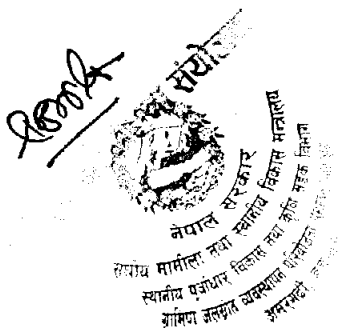 संयो
नेपाल सरकार
संघीय मामिला तथा स्थानीय विकास मन्त्रालय
स्थानीय पूर्वाधार विकास तथा कृषि सडक विभाग
ग्रामिण जलस्रोत व्यवस्थापन परियोजना